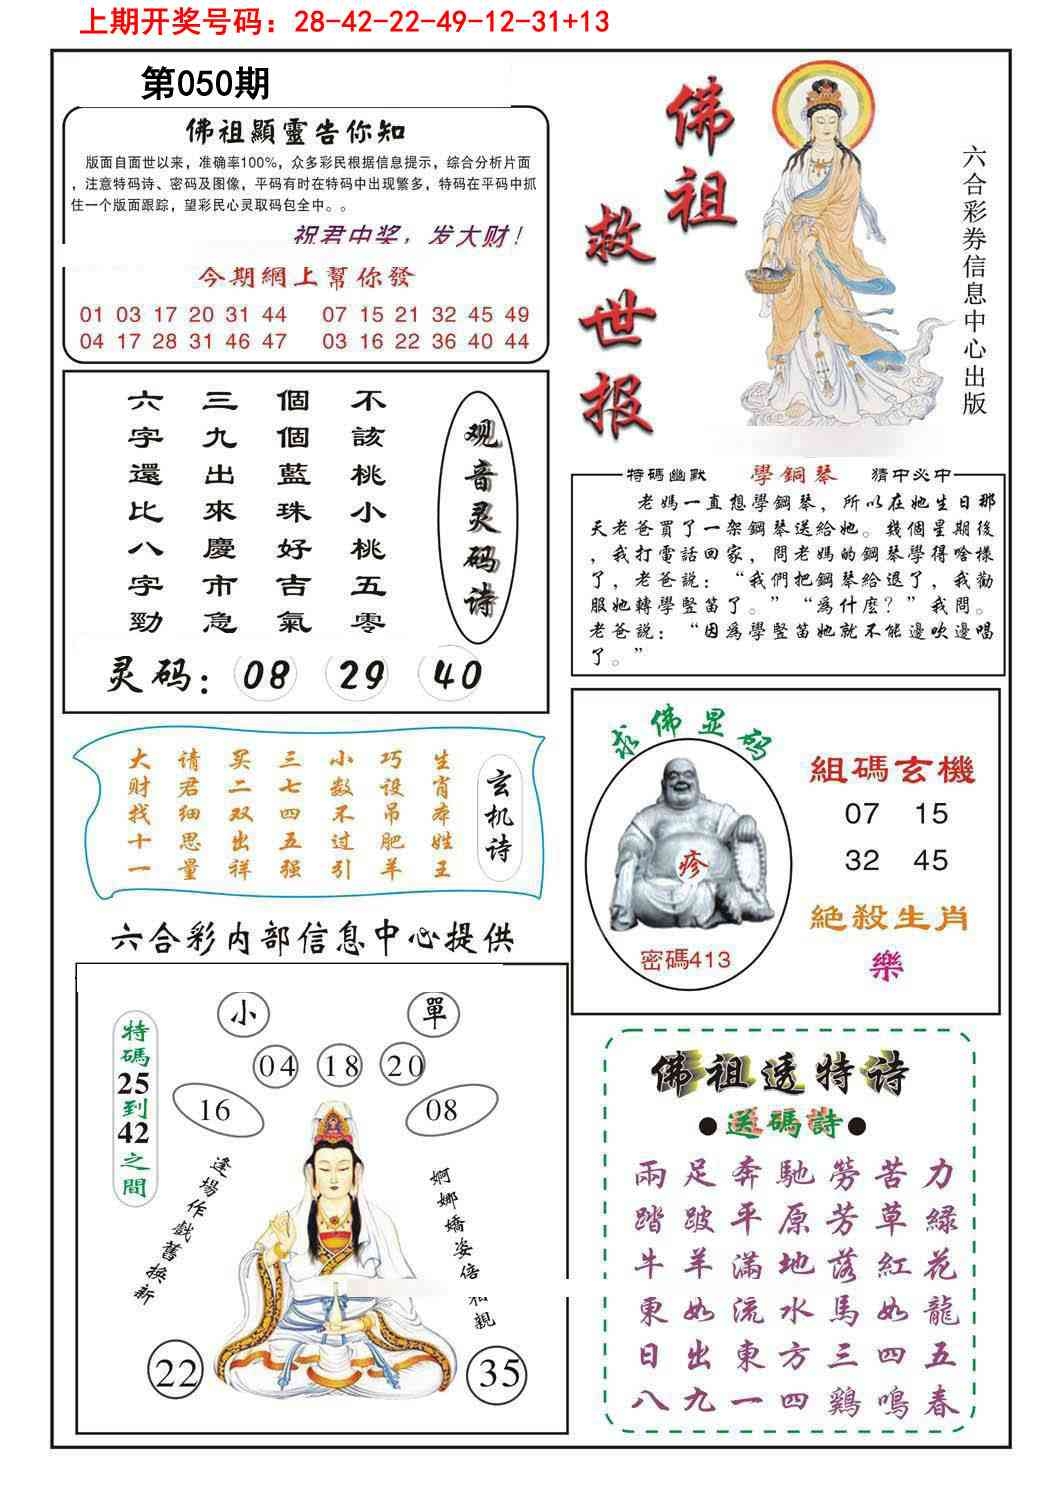 上期开奖号码：28-42-22-49-12-31+13
第050期
佛祖顯靈告你知
版面自面世以来，准确率100%，众多彩民根据信息提示，综合分析片面
，注意特码诗、密码及图像，平码有时在特码中出现繁多，特码在平码中抓
住一个版面跟踪，望彩民心灵取码包全中。。
祝君中奖，发大财！
今期網上幫你發
01 03 17 20 31 44 07 15 21 32 45 49
04 17 28 31 46 47 03 16 22 36 40 44
佛祖
救世报
六合彩券信息中心出版
观音灵码诗
不該桃小桃五零
個個藍珠好吉氣
三九出來慶市急
六字還比八字勁
灵码：08 29 40
特碼幽默 學銅琴 猜中必中
老媽一直想學鋼琴，所以在她生日那
天老爸買了一架鋼琴送給她。幾個星期後
，我打電話回家，問老媽的鋼琴學得啥樣
了，老爸説：“我們把鋼琴給退了，我勸
服她轉學豎笛了。”“為什麽？”我問。
老爸説：“因為學豎笛她就不能邊吹邊唱
了。”
玄机诗
生肖本姓王
巧设吊肥羊
小数不过引
三七四五强
买二双出祥
请君细思量
大财找十一
求佛显码
疹
密碼413
組碼玄機
07 15
32 45
絕殺生肖
樂
六合彩内部信息中心提供
小 單
04 18 20
16 08
特碼25到42之間
逢場作戲舊換新
婀娜嬌姿倍和親
22 35
佛祖透特诗
●送碼詩●
兩足奔馳勞苦力
踏跛平原芳草緑
牛羊滿地落紅花
東如流水馬如龍
日出東方三四五
八九一四鷄鳴春